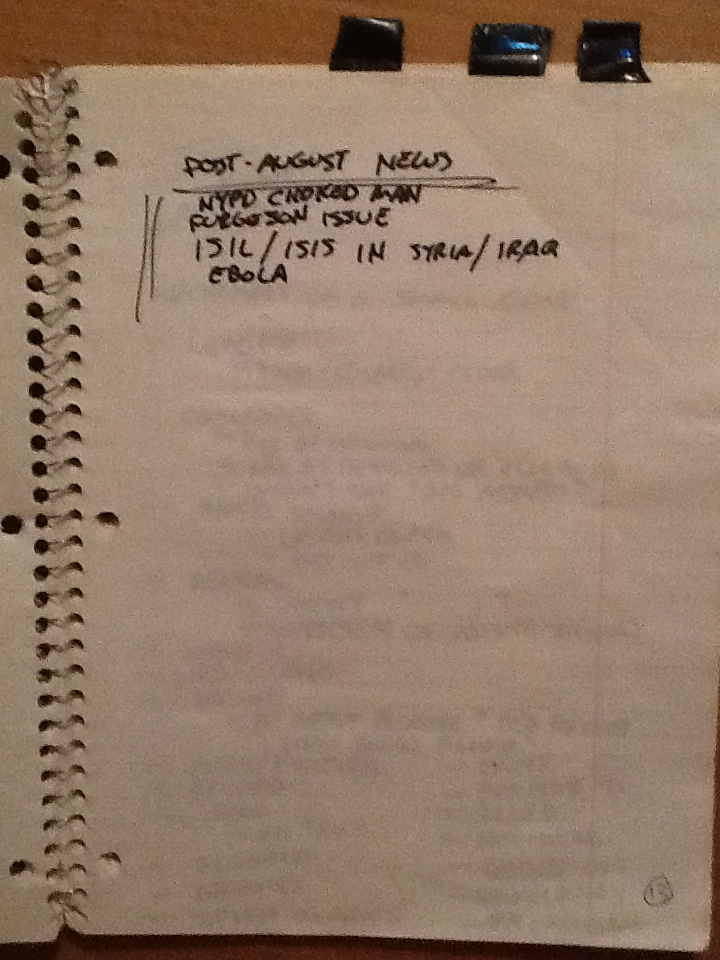 POST-AUGUST NEWS
NYPD CHOKED MAN
FURGESON ISSUE
ISIL/ISIS IN SYRIA/IRAQ
EBOLA
13